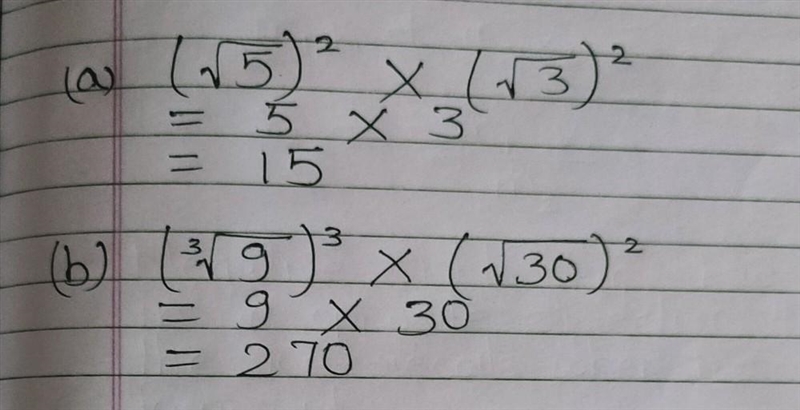 (a) (√5)² × (√3)²
= 5 × 3
= 15
(b) (³√9)³ × (√30)²
= 9 × 30
= 270